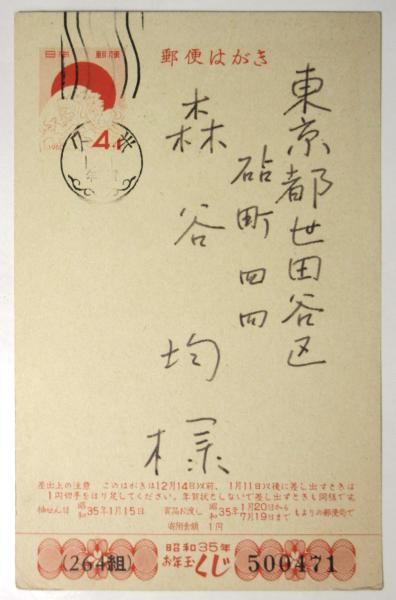 日本郵便
郵便はがき
1960
4
東京都世田谷区
砧町四四
森谷均様
差出上の注意 このはがきは12月14日以前、1月11日以後に差し出すときは
1円切手をはり足してください。年賀状としないで差し出すときも同様です
抽せん日 昭和35年1月15日 賞品お渡し 昭和35年1月20日から7月19日まで もよりの郵便局で
寄附金額 1円
(264組)
昭和35年
お年玉くじ
500471